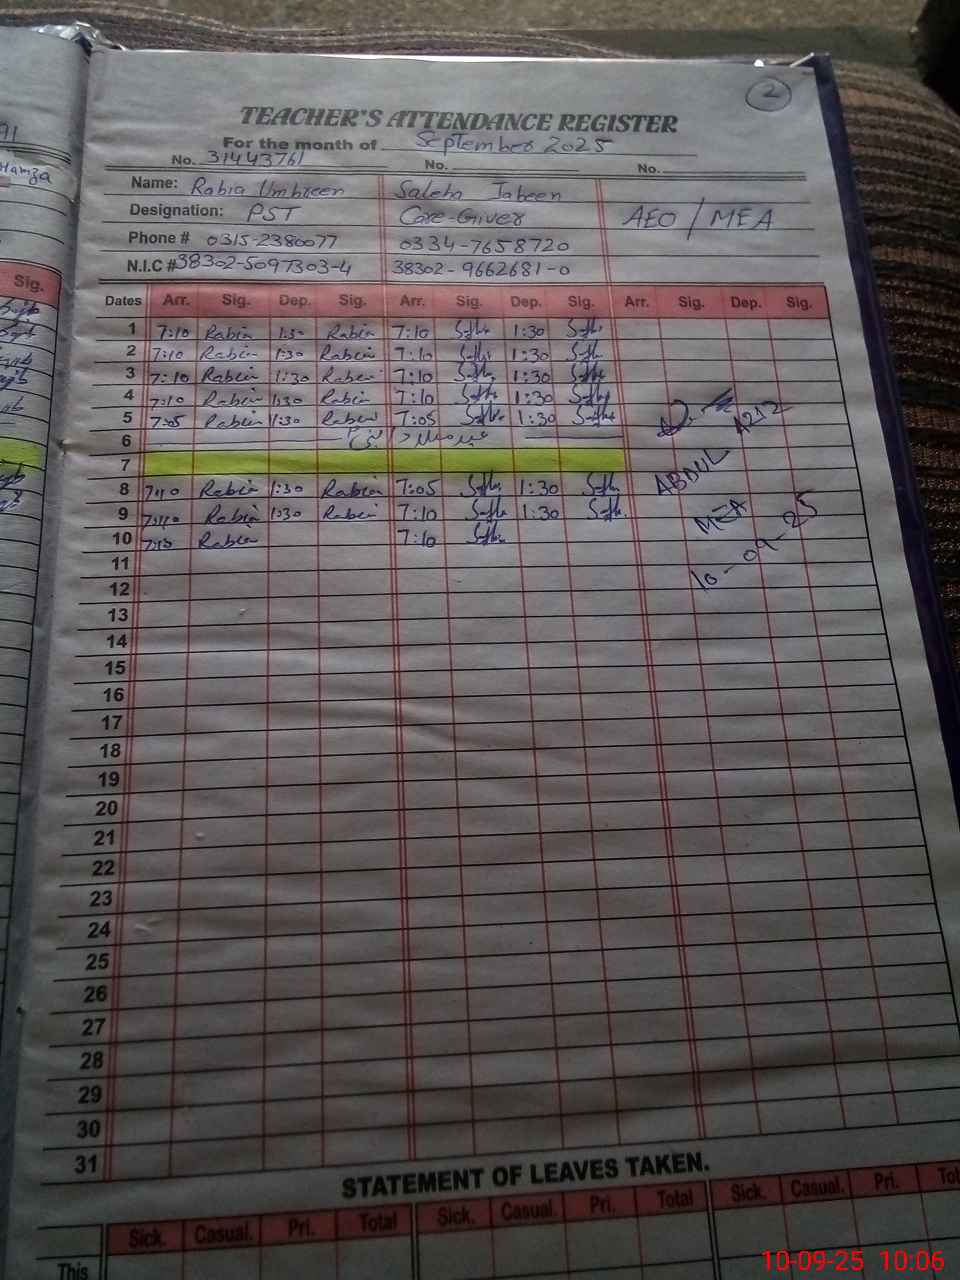 2
TEACHER'S ATTENDANCE REGISTER
For the month of September 2025
No. 31443761 No. No.
Name: Rabia Umbreen Saleha Jabeen
Designation: PST Care-Giver AEO / MEA
Phone # 0315-2380077 0334-7658720
N.I.C # 38302-5097303-4 38302-9662681-0
Dates Arr. Sig. Dep. Sig. Arr. Sig. Dep. Sig. Arr. Sig. Dep. Sig.
1 7:10 Rabia 1:30 Rabia 7:10 1:30
2 7:10 Rabia 1:30 Rabia 7:10 1:30
3 7:10 Rabia 1:30 Rabia 7:10 1:30
4 7:10 Rabia 1:30 Rabia 7:10 1:30
5 7:05 Rabia 1:30 Rabia 7:05 1:30
6 عید میلاد النبی
7
8 7:10 Rabia 1:30 Rabia 7:05 1:30
9 7:10 Rabia 1:30 Rabia 7:10 1:30
10 7:10 Rabia 7:10
ABDUL AZIZ
MEA
10-09-25
11
12
13
14
15
16
17
18
19
20
21
22
23
24
25
26
27
28
29
30
31
STATEMENT OF LEAVES TAKEN.
Sick. Casual. Pri. Total Sick. Casual. Pri. Total Sick. Casual. Pri.
This
Hamza
Sig.
10-09-25 10:06